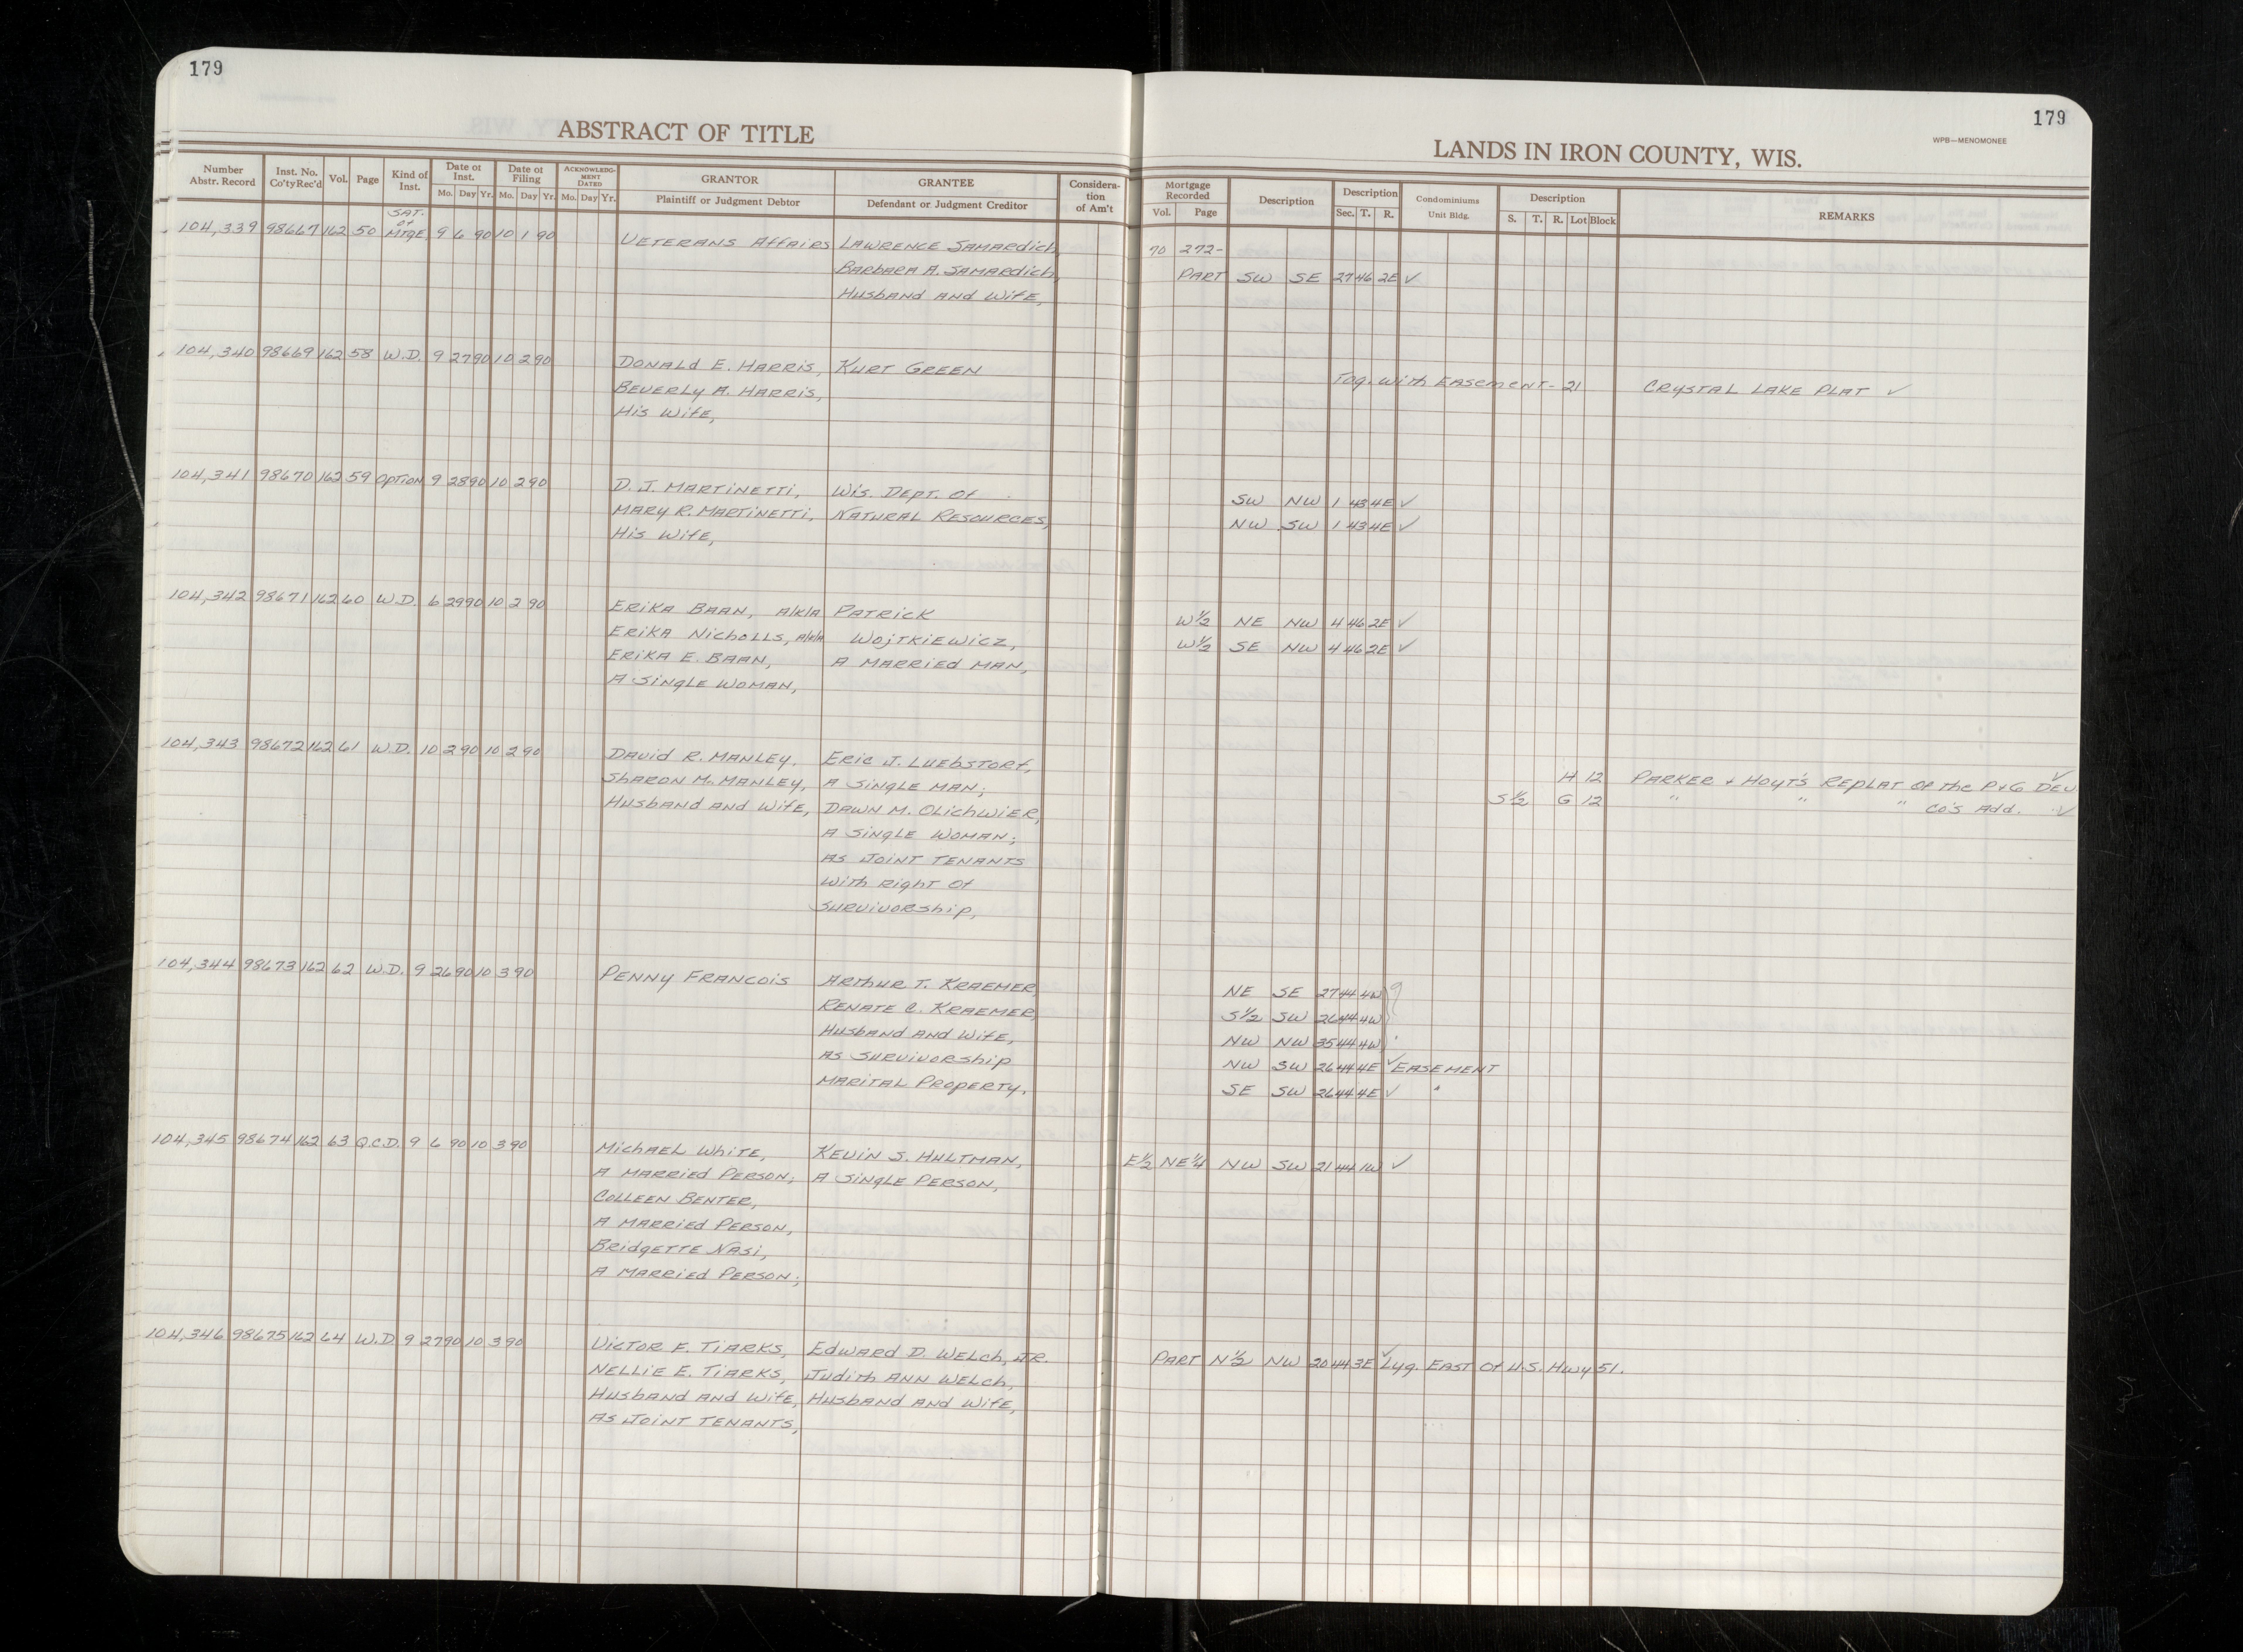 179
ABSTRACT OF TITLE
Number Abstr. Record
Inst. No. Co'ty Rec'd
Vol.
Page
Kind of Inst.
Date of Inst. Mo. Day Yr.
Date of Filing Mo. Day Yr.
ACKNOWLEDGMENT DATED Mo. Day Yr.
GRANTOR Plaintiff or Judgment Debtor
GRANTEE Defendant or Judgment Creditor
Considera-tion of Am't
SAT. of
104,339 98667 162 50 MTGE. 9 6 90 10 1 90
VETERANS AFFAIRS LAWRENCE SAMARDICH,
BARBARA A. SAMARDICH,
HUSBAND AND WIFE,
104,340 98669 162 58 W.D. 9 27 90 10 2 90
DONALD E. HARRIS, KURT GREEN
BEVERLY A. HARRIS,
HIS WIFE,
104,341 98670 162 59 OPTION 9 28 90 10 2 90
D. J. MARTINETTI, WIS. DEPT. OF
MARY R. MARTINETTI, NATURAL RESOURCES,
HIS WIFE,
104,342 98671 162 60 W.D. 6 29 90 10 2 90
ERIKA BAAN, A/K/A PATRICK
ERIKA NICHOLLS, A/K/A WOJTKIEWICZ,
ERIKA E. BAAN, A MARRIED MAN,
A SINGLE WOMAN,
104,343 98672 162 61 W.D. 10 2 90 10 2 90
DAVID R. MANLEY, ERIC J. LUEBSTORF,
SHARON M. MANLEY, A SINGLE MAN;
HUSBAND AND WIFE, DAWN M. OLICHWIER,
A SINGLE WOMAN;
AS JOINT TENANTS
WITH RIGHT OF
SURVIVORSHIP,
104,344 98673 162 62 W.D. 9 26 90 10 3 90
PENNY FRANCOIS ARTHUR T. KRAEMER,
RENATE C. KRAEMER,
HUSBAND AND WIFE,
AS SURVIVORSHIP
MARITAL PROPERTY.
104,345 98674 162 63 Q.C.D. 9 6 90 10 3 90
MICHAEL WHITE, KEVIN S. HULTMAN,
A MARRIED PERSON; A SINGLE PERSON,
COLLEEN BENTER,
A MARRIED PERSON,
BRIDGETTE NASI,
A MARRIED PERSON;
104,346 98675 162 64 W.D. 9 27 90 10 3 90
VICTOR F. TIARKS, EDWARD D. WELCH, JR.
NELLIE E. TIARKS, JUDITH ANN WELCH,
HUSBAND AND WIFE, HUSBAND AND WIFE,
AS JOINT TENANTS,
179
WPB—MENOMONEE
LANDS IN IRON COUNTY, WIS.
Mortgage Recorded Vol. Page
Description
Description Sec. T. R.
Condominiums Unit Bldg.
Description S. T. R. Lot Block
REMARKS
70 272-
PART SW SE 27 46 2E ✓
TOG. WITH EASEMENT - 21 CRYSTAL LAKE PLAT ✓
SW NW 1 43 4E ✓
NW SW 1 43 4E ✓
W½ NE NW 4 46 2E ✓
W½ SE NW 4 46 2E ✓
H 12 PARKER & HOYT'S REPLAT OF THE P&G DEV ✓
S½ G 12 " " " CO'S ADD. ✓
NE SE 27 44 4W
S½ SW 26 44 4W
NW NW 35 44 4W
NW SW 26 44 4E ✓ EASEMENT
SE SW 26 44 4E ✓ "
E½ NE¼ NW SW 21 44 1W ✓
PART N½ NW 20 44 3E ✓ LYG. EAST OF U.S. HWY 51.